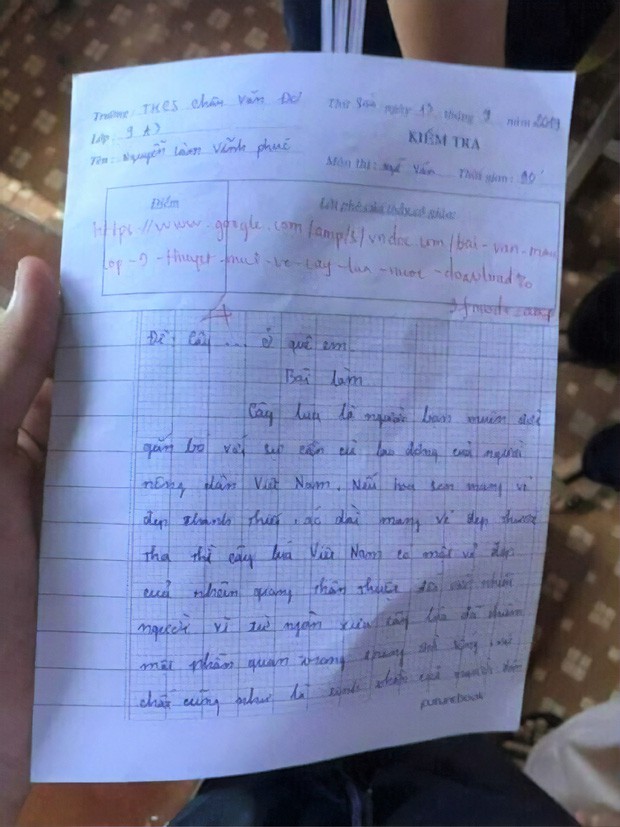 Trường: THCS Chân Văn Đời Thứ Sáu ngày 13 tháng 9 năm 2019
Lớp: 9 A7 KIỂM TRA
Tên: Nguyễn Lâm Vĩnh Phúc Môn thi: Ngữ Văn Thời gian: 90'
Điểm Lời phê của thầy cô giáo
https://www.google.com/amp/s/vndoc.com/bai-van-mau
lop-9-thuyet-minh-ve-cay-lua-nuoc-download%
3fmode=amp
Đề: Cây ... ở quê em
Bài làm
Cây lúa là người bạn muôn đời
gắn bó với sự cần cù lao động của người
nông dân Việt Nam. Nếu hoa sen mang vẻ
đẹp thanh thiết, áo dài mang vẻ đẹp thướt
tha thì cây lúa Việt Nam có một vẻ đẹp
của thân thuộc với nhiều
người vì từ ngàn xưa cây lúa đã chiếm
một phần quan trọng trong đời sống vật
chất cũng như là tinh thần của người dân
futurebook